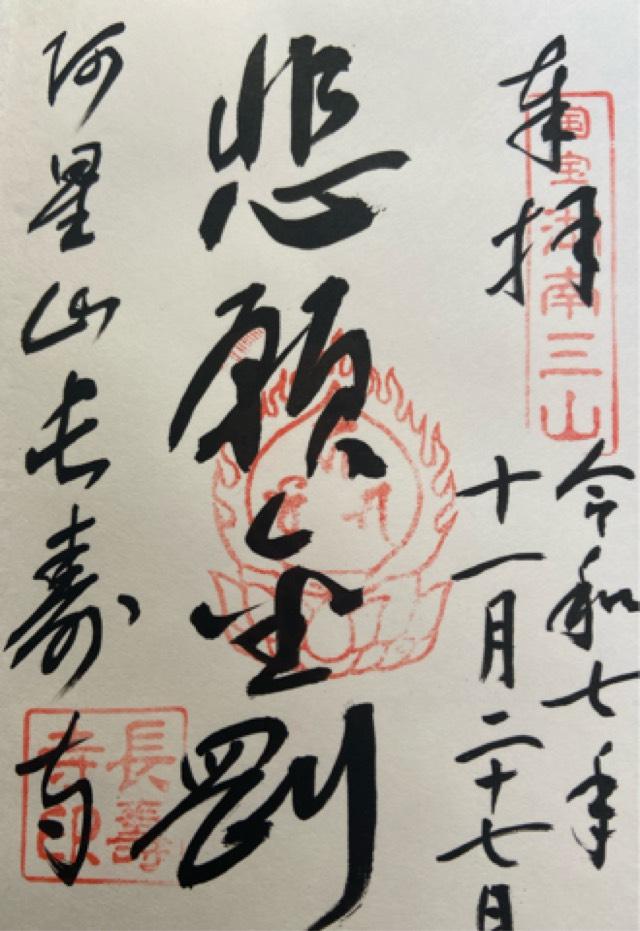 奉拝
国宝湖南三山
令和七年
十一月二十七日
悲願金剛
阿星山長寿寺
長壽寺印